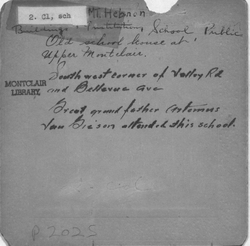 2. Cl, sch
Mt. Hebron
Buildings, Institutions, School Public
Old school house at
Upper Montclair.
Southwest corner of Valley Rd
and Bellevue Ave
MONTCLAIR
LIBRARY.
Great grand father
Van Giesen attended this school.
P 2025